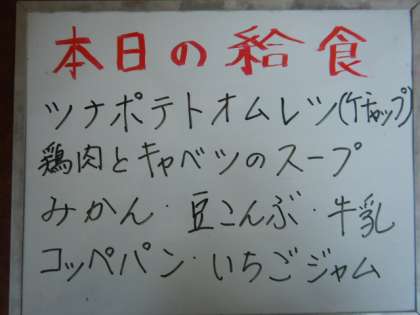 本日の給食
ツナポテトオムレツ(ケチャップ)
鶏肉とキャベツのスープ
みかん・豆こんぶ・牛乳
コッペパン・いちごジャム